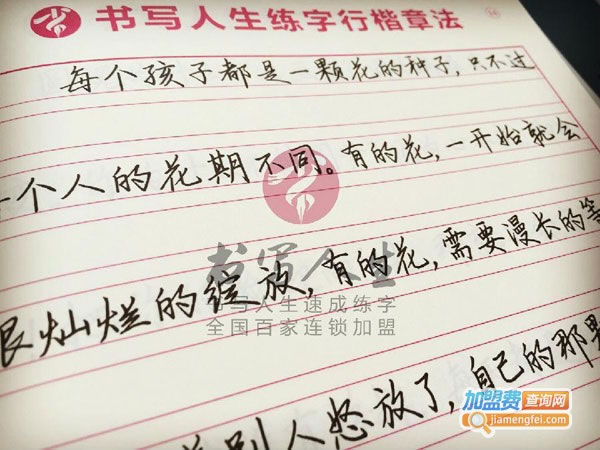 书写人生练字行楷章法
每个孩子都是一颗花的种子,只不过
个人的花期不同。有的花,一开始就会
很灿烂的绽放,有的花,需要漫长的等
书写人生
书写人生速成练字
全国百家连锁加盟
别人怒放了,自己的那
加盟费查询网
jiamengfei.com